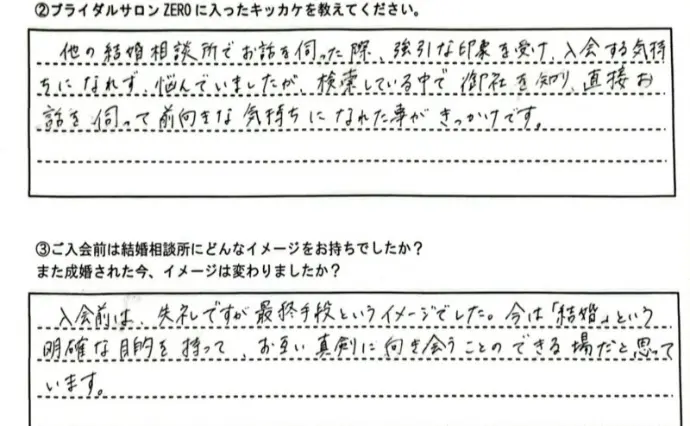 ②ブライダルサロン ZERO に入ったキッカケを教えてください。
他の結婚相談所でお話を伺った際、強引な印象を受け、入会する気持
ちになれず、悩んでいましたが、検索している中で御社を知り、直接お
話を伺って前向きな気持ちになれた事がきっかけです。
③ご入会前は結婚相談所にどんなイメージをお持ちでしたか？
また成婚された今、イメージは変わりましたか？
入会前は、失礼ですが最終手段というイメージでした。今は「結婚」という
明確な目的を持って、お互い真剣に向き合うことのできる場だと思って
います。